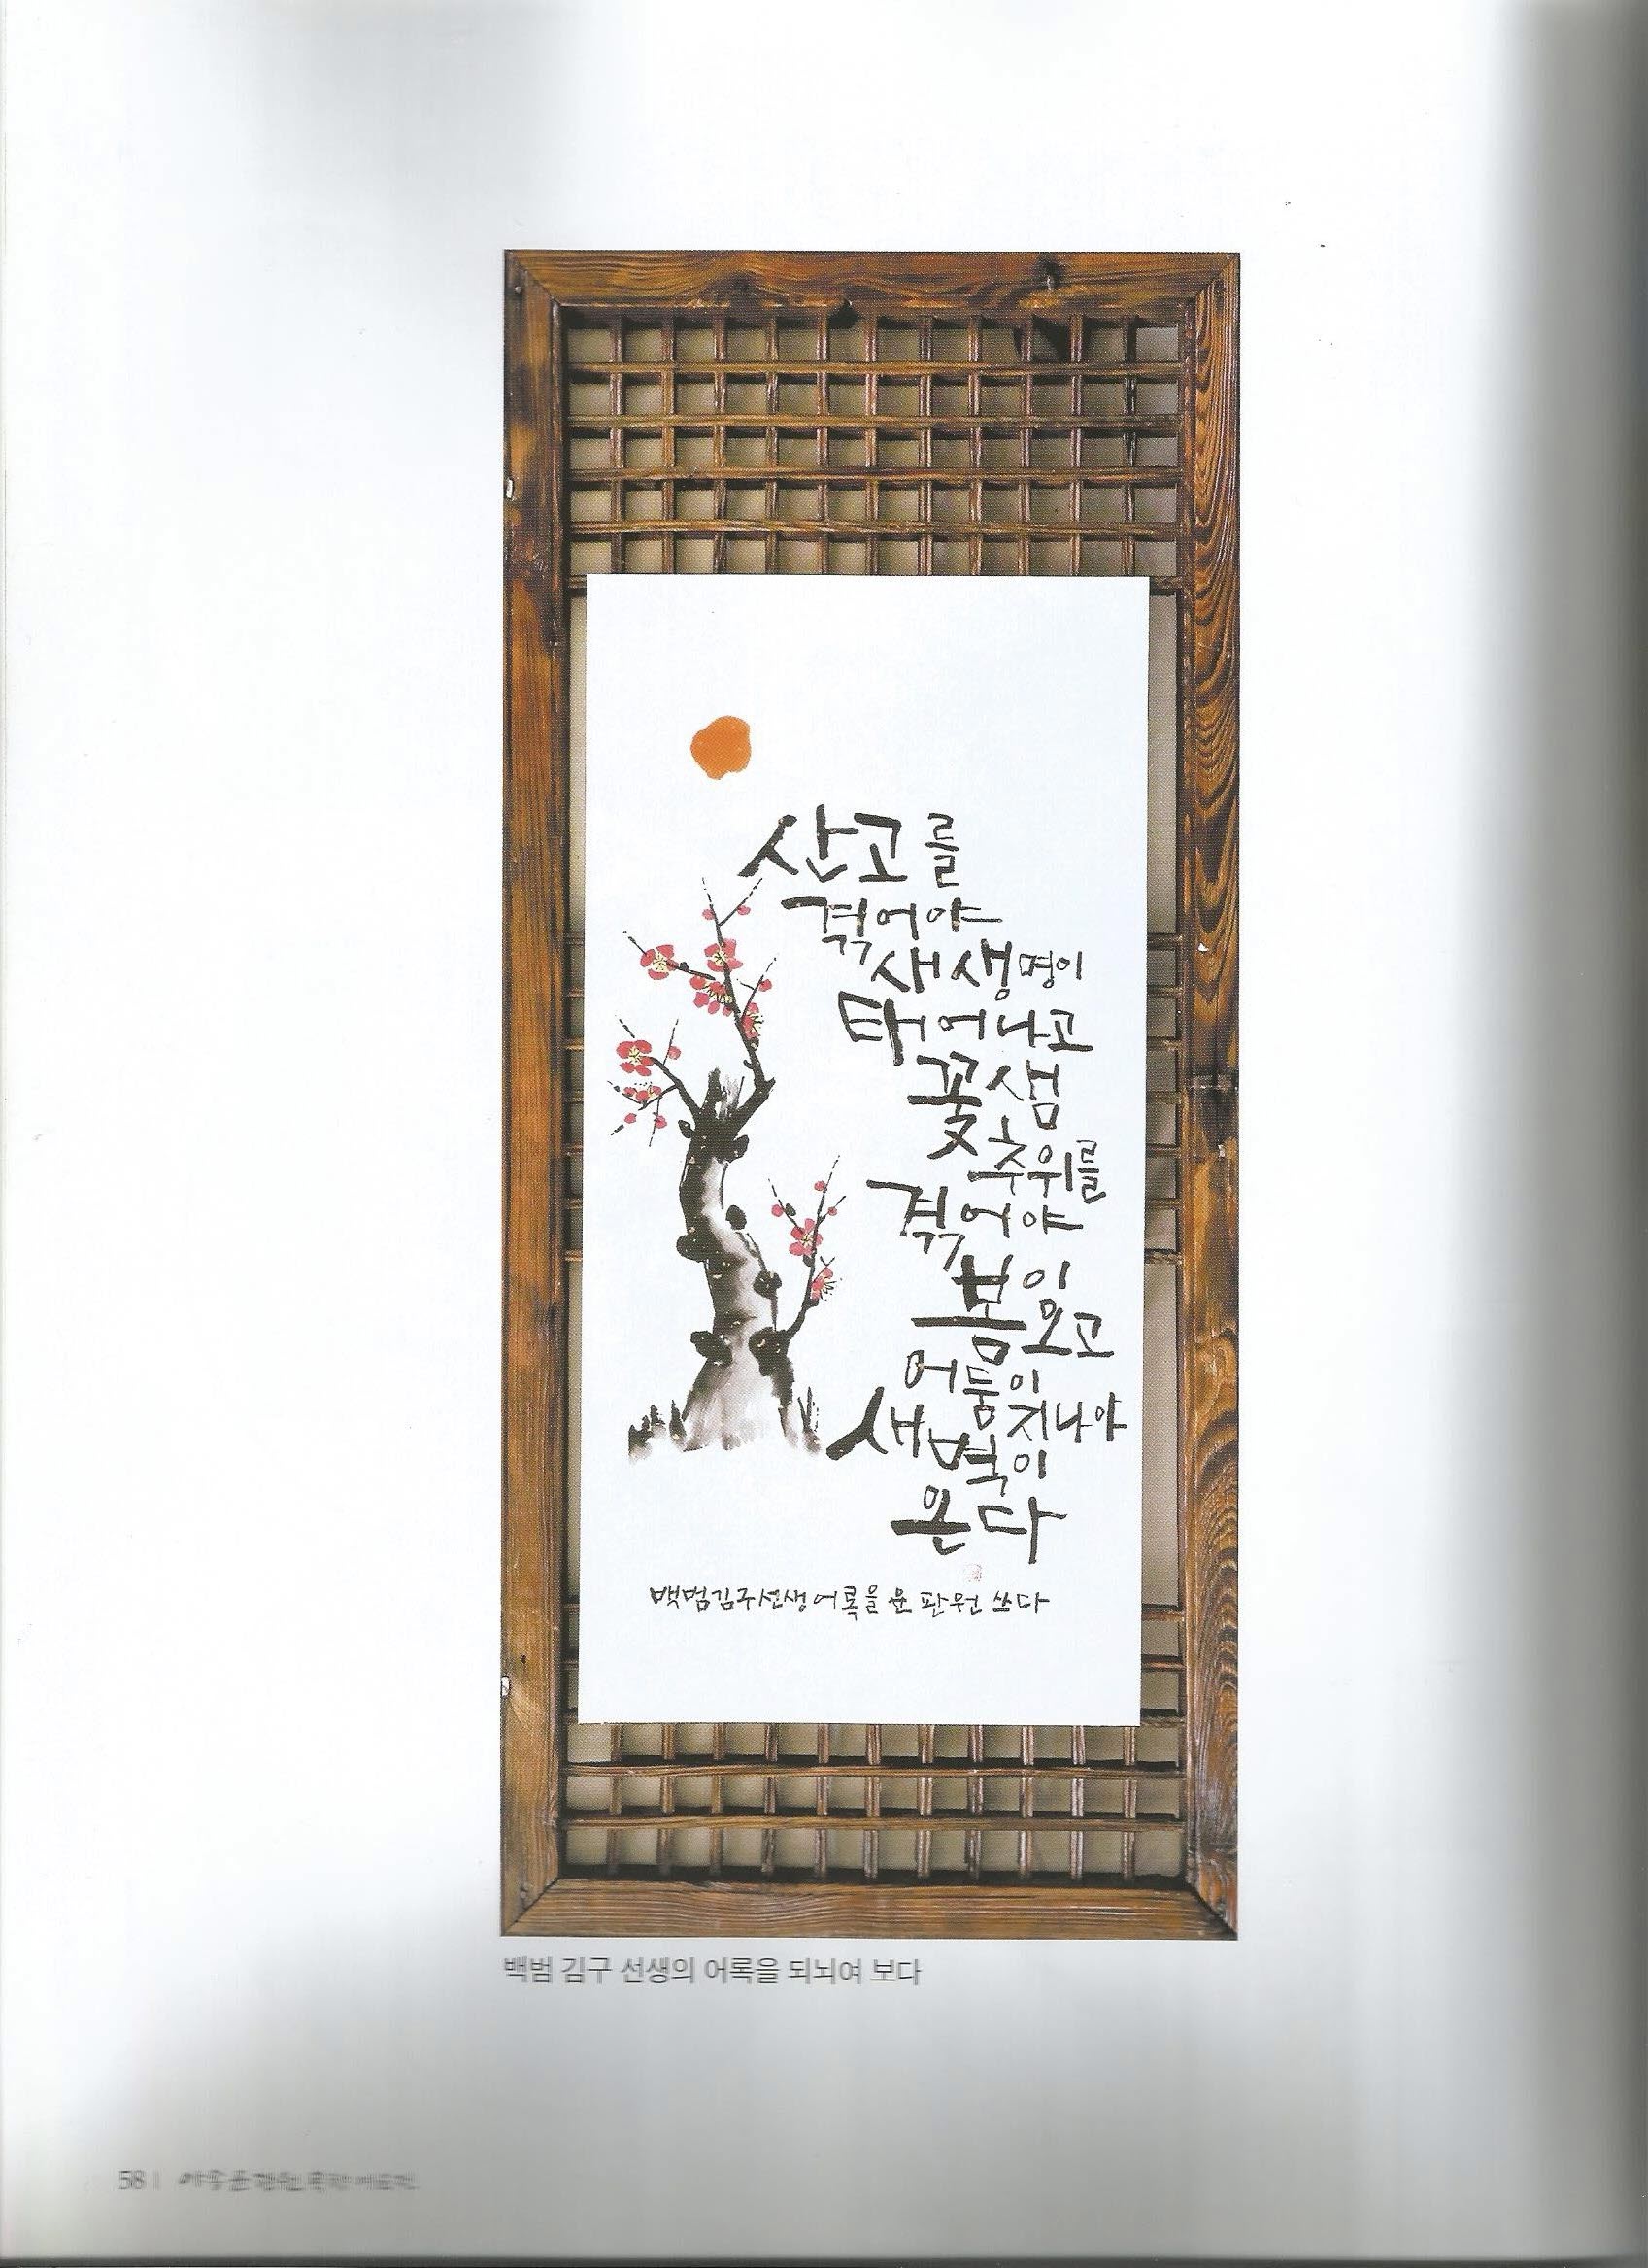 산고를
겪어야
새생명이
태어나고
꽃샘
추위를
겪어야
봄이
오고
어둠이
지나야
새벽이
온다
백범김구선생어록을 윤판원 쓰다
백범 김구 선생의 어록을 되뇌여 보다
58 |